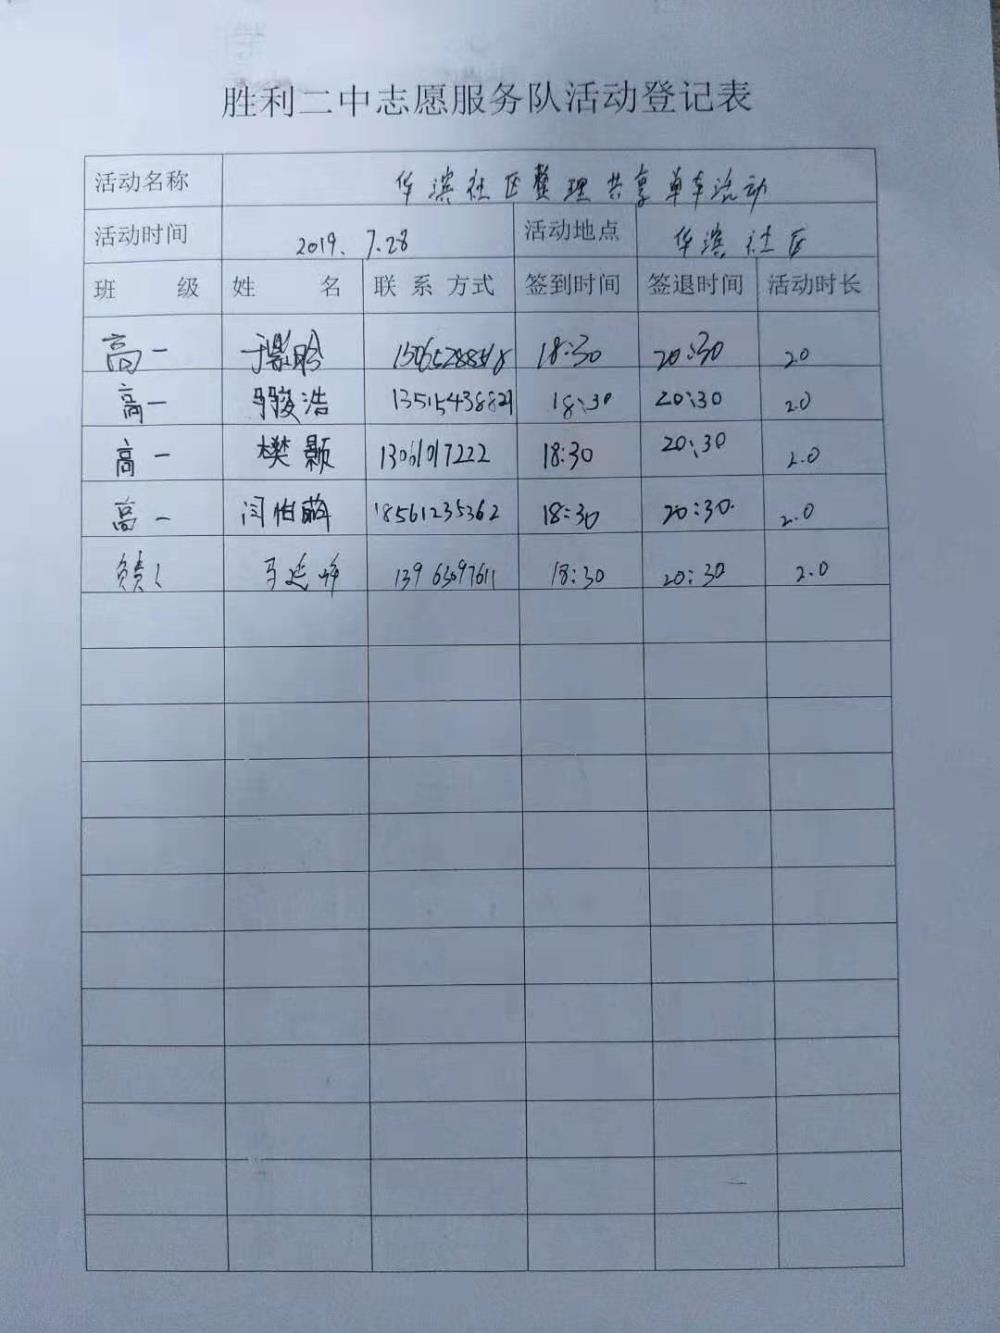 胜利二中志愿服务队活动登记表
活动名称 华滨社区整理共享单车活动
活动时间 2019.7.28 活动地点 华滨社区
班 级 姓 名 联系方式 签到时间 签退时间 活动时长
高一 18:30 20:30 2.0
高一 马骏浩 13515438821 18:30 20:30 2.0
高一 樊颢 13061017222 18:30 20:30 2.0
高一 闫怡萌 18561235362 18:30 20:30. 2.0
马延峰 13963097611 18:30 20:30 2.0